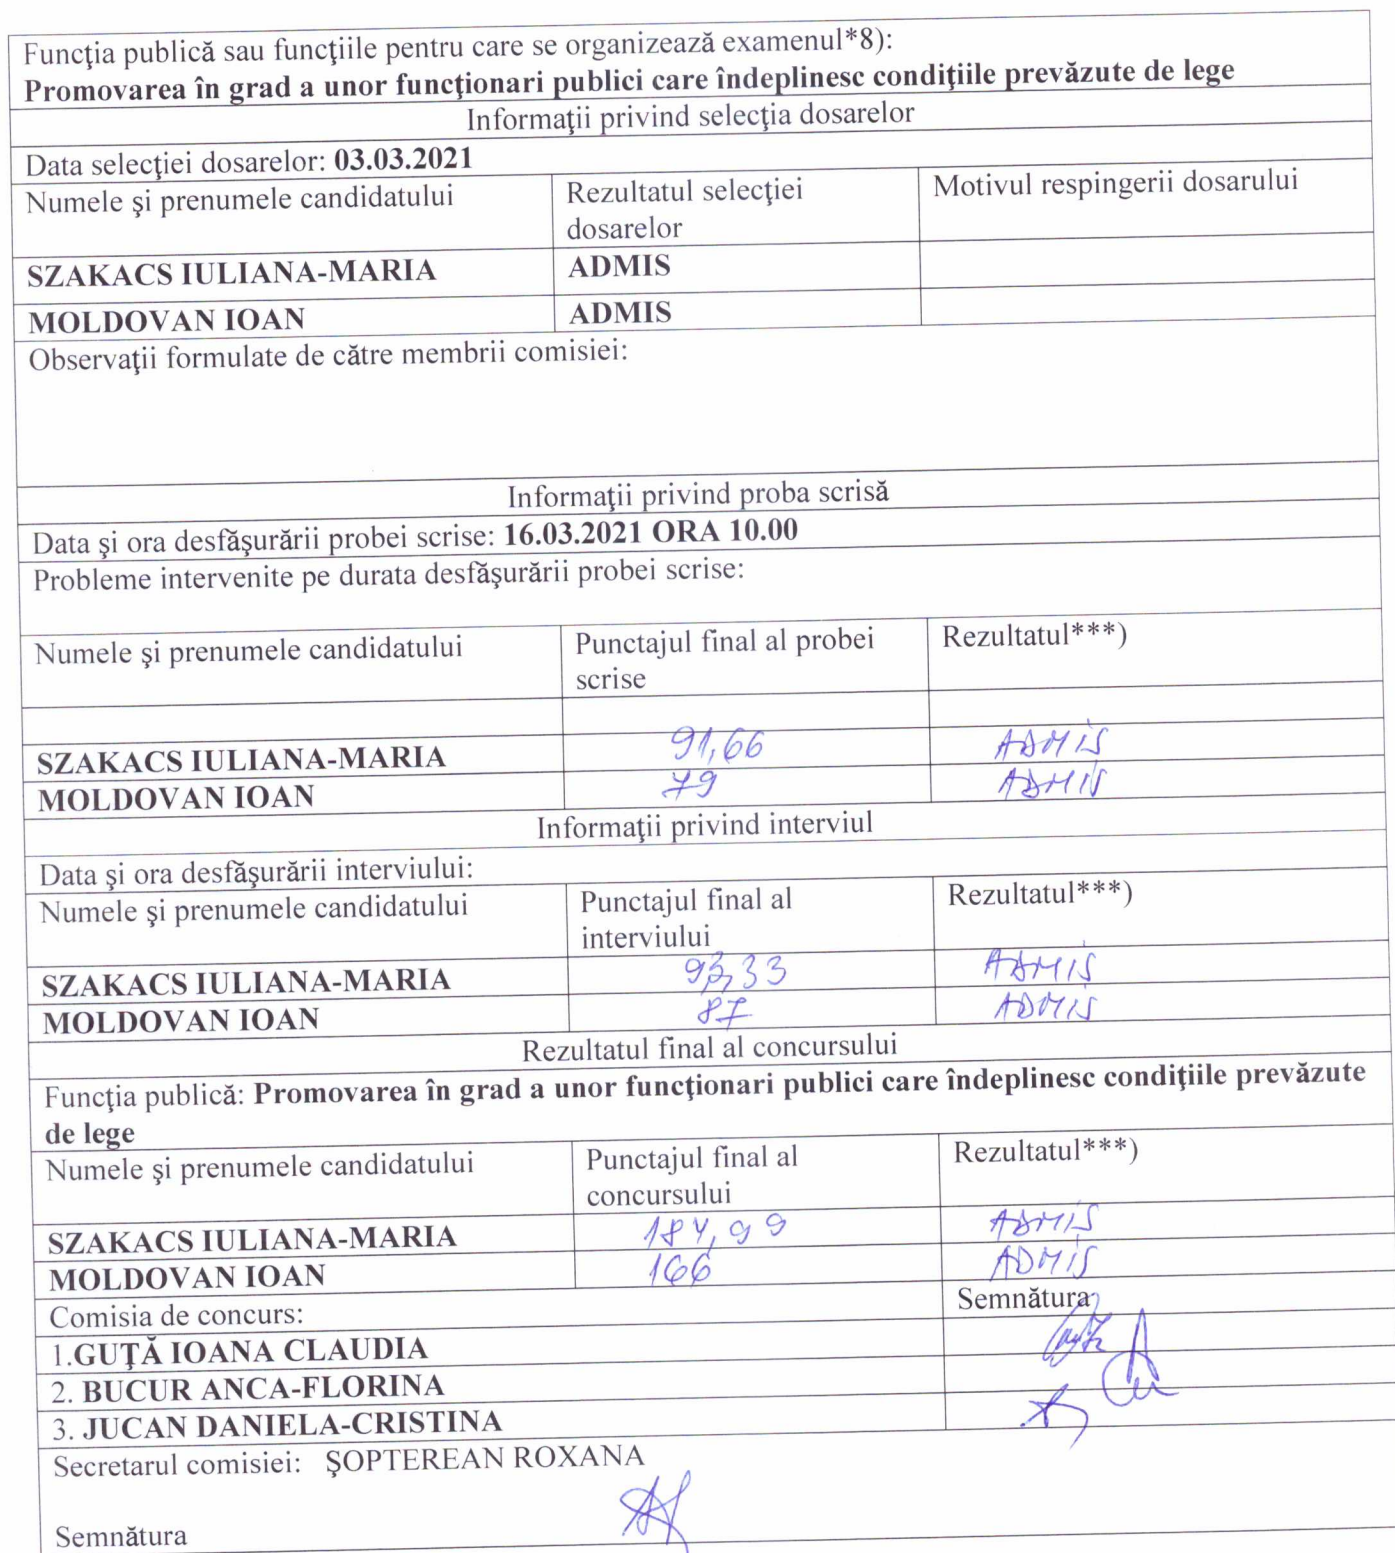 Funcţia publică sau funcţiile pentru care se organizează examenul*8):
Promovarea în grad a unor funcţionari publici care îndeplinesc condiţiile prevăzute de lege
Informaţii privind selecţia dosarelor
Data selecţiei dosarelor: 03.03.2021
Numele şi prenumele candidatului Rezultatul selecţiei dosarelor Motivul respingerii dosarului
SZAKACS IULIANA-MARIA ADMIS
MOLDOVAN IOAN ADMIS
Observaţii formulate de către membrii comisiei:
Informaţii privind proba scrisă
Data şi ora desfăşurării probei scrise: 16.03.2021 ORA 10.00
Probleme intervenite pe durata desfăşurării probei scrise:
Numele şi prenumele candidatului Punctajul final al probei scrise Rezultatul***)
SZAKACS IULIANA-MARIA 91,66 ADMIS
MOLDOVAN IOAN 79 ADMIS
Informaţii privind interviul
Data şi ora desfăşurării interviului:
Numele şi prenumele candidatului Punctajul final al interviului Rezultatul***)
SZAKACS IULIANA-MARIA 93,33 ADMIS
MOLDOVAN IOAN 87 ADMIS
Rezultatul final al concursului
Funcţia publică: Promovarea în grad a unor funcţionari publici care îndeplinesc condiţiile prevăzute
de lege
Numele şi prenumele candidatului Punctajul final al concursului Rezultatul***)
SZAKACS IULIANA-MARIA 184,99 ADMIS
MOLDOVAN IOAN 166 ADMIS
Comisia de concurs: Semnătura
1.GUŢĂ IOANA CLAUDIA
2. BUCUR ANCA-FLORINA
3. JUCAN DANIELA-CRISTINA
Secretarul comisiei: ŞOPTEREAN ROXANA
Semnătura